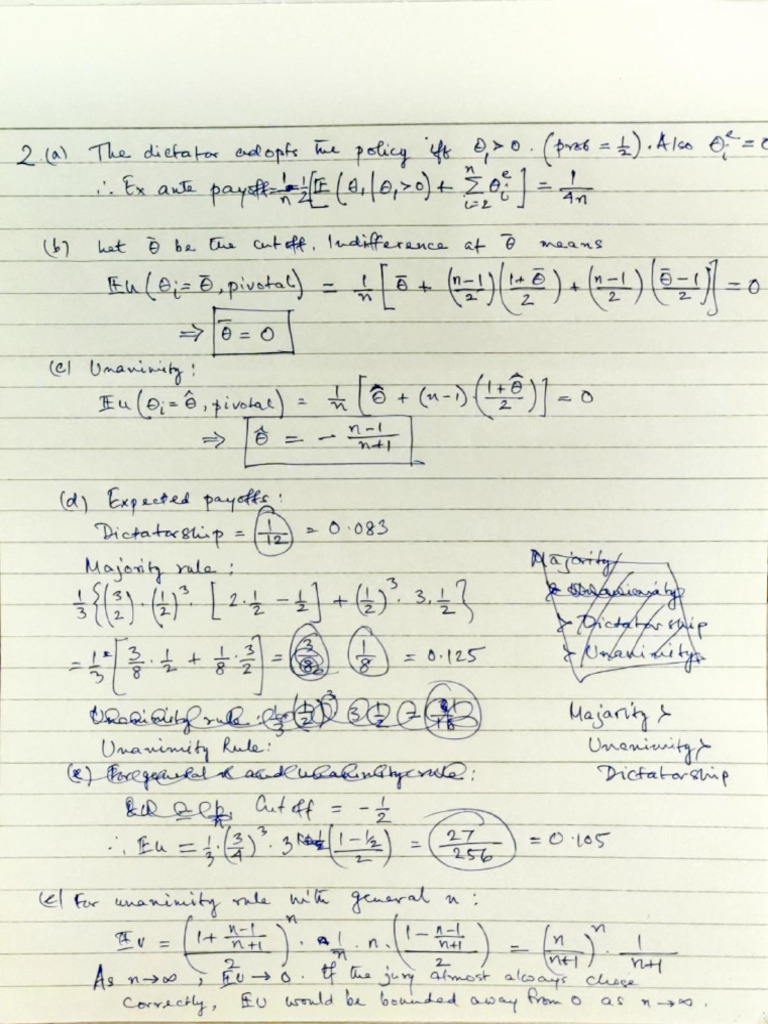 2.(a) The dictator adopts the policy iff θ₁>0. (prob = 1/2). Also θᵢᵉ = 0
∴ Ex ante payoff = 1/n · 1/2 [𝔼(θ₁|θ₁>0) + Σᵢ₌₂ⁿ θᵢᵉ] = 1/4n
(b) Let θ̄ be the cutoff. Indifference at θ̄ means
𝔼u(θᵢ=θ̄, pivotal) = 1/n [θ̄ + ((n-1)/2)((1+θ̄)/2) + ((n-1)/2)((θ̄-1)/2)] = 0
⇒ θ̄ = 0
(c) Unanimity:
𝔼u(θᵢ=θ̂, pivotal) = 1/n [θ̂ + (n-1)·((1+θ̂)/2)] = 0
⇒ θ̂ = - (n-1)/(n+1)
(d) Expected payoffs:
Dictatorship = 1/12 = 0.083
Majority rule:
1/3 {(3 2)·(1/2)³·[2·1/2 - 1/2] + (1/2)³·3·1/2}
= 1/3 [3/8·1/2 + 1/8·3/2] = 1/8 = 0.125
Majority ≻
Unanimity ≻
Dictatorship
Unanimity Rule:
Cutoff = -1/2
∴ 𝔼u = 1/3·(3/4)³·3 ((1-1/2)/2) = 27/256 = 0.105
(e) For unanimity rule with general n:
𝔼u = ((1+(n-1)/(n+1))/2)ⁿ · 1/n · n · ((1-(n-1)/(n+1))/2) = (n/(n+1))ⁿ · 1/(n+1)
As n→∞, 𝔼u→0. If the jury almost always chose
correctly, 𝔼u would be bounded away from 0 as n→∞.